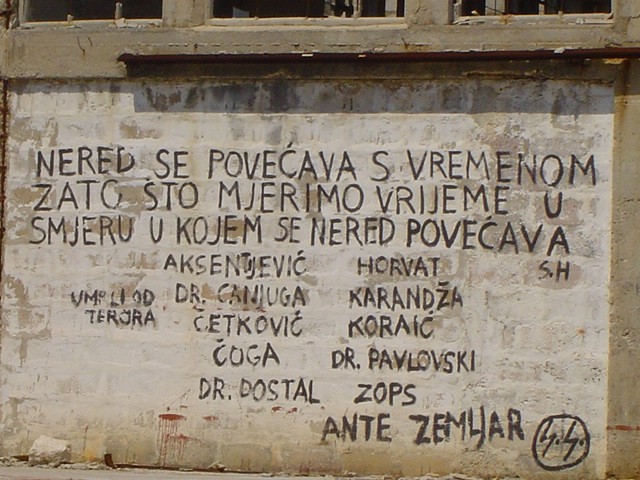 NERED SE POVEĆAVA S VREMENOM
ZATO ŠTO MJERIMO VRIJEME U
SMJERU U KOJEM SE NERED POVEĆAVA
S.H
AKSENTIJEVIĆ HORVAT
UMRLI OD DR. CANJUGA KARANDŽA
TERORA ČETKOVIĆ KORAIĆ
ČOGA DR. PAVLOVSKI
DR. DOSTAL ZOPS
ANTE ZEMLJAR